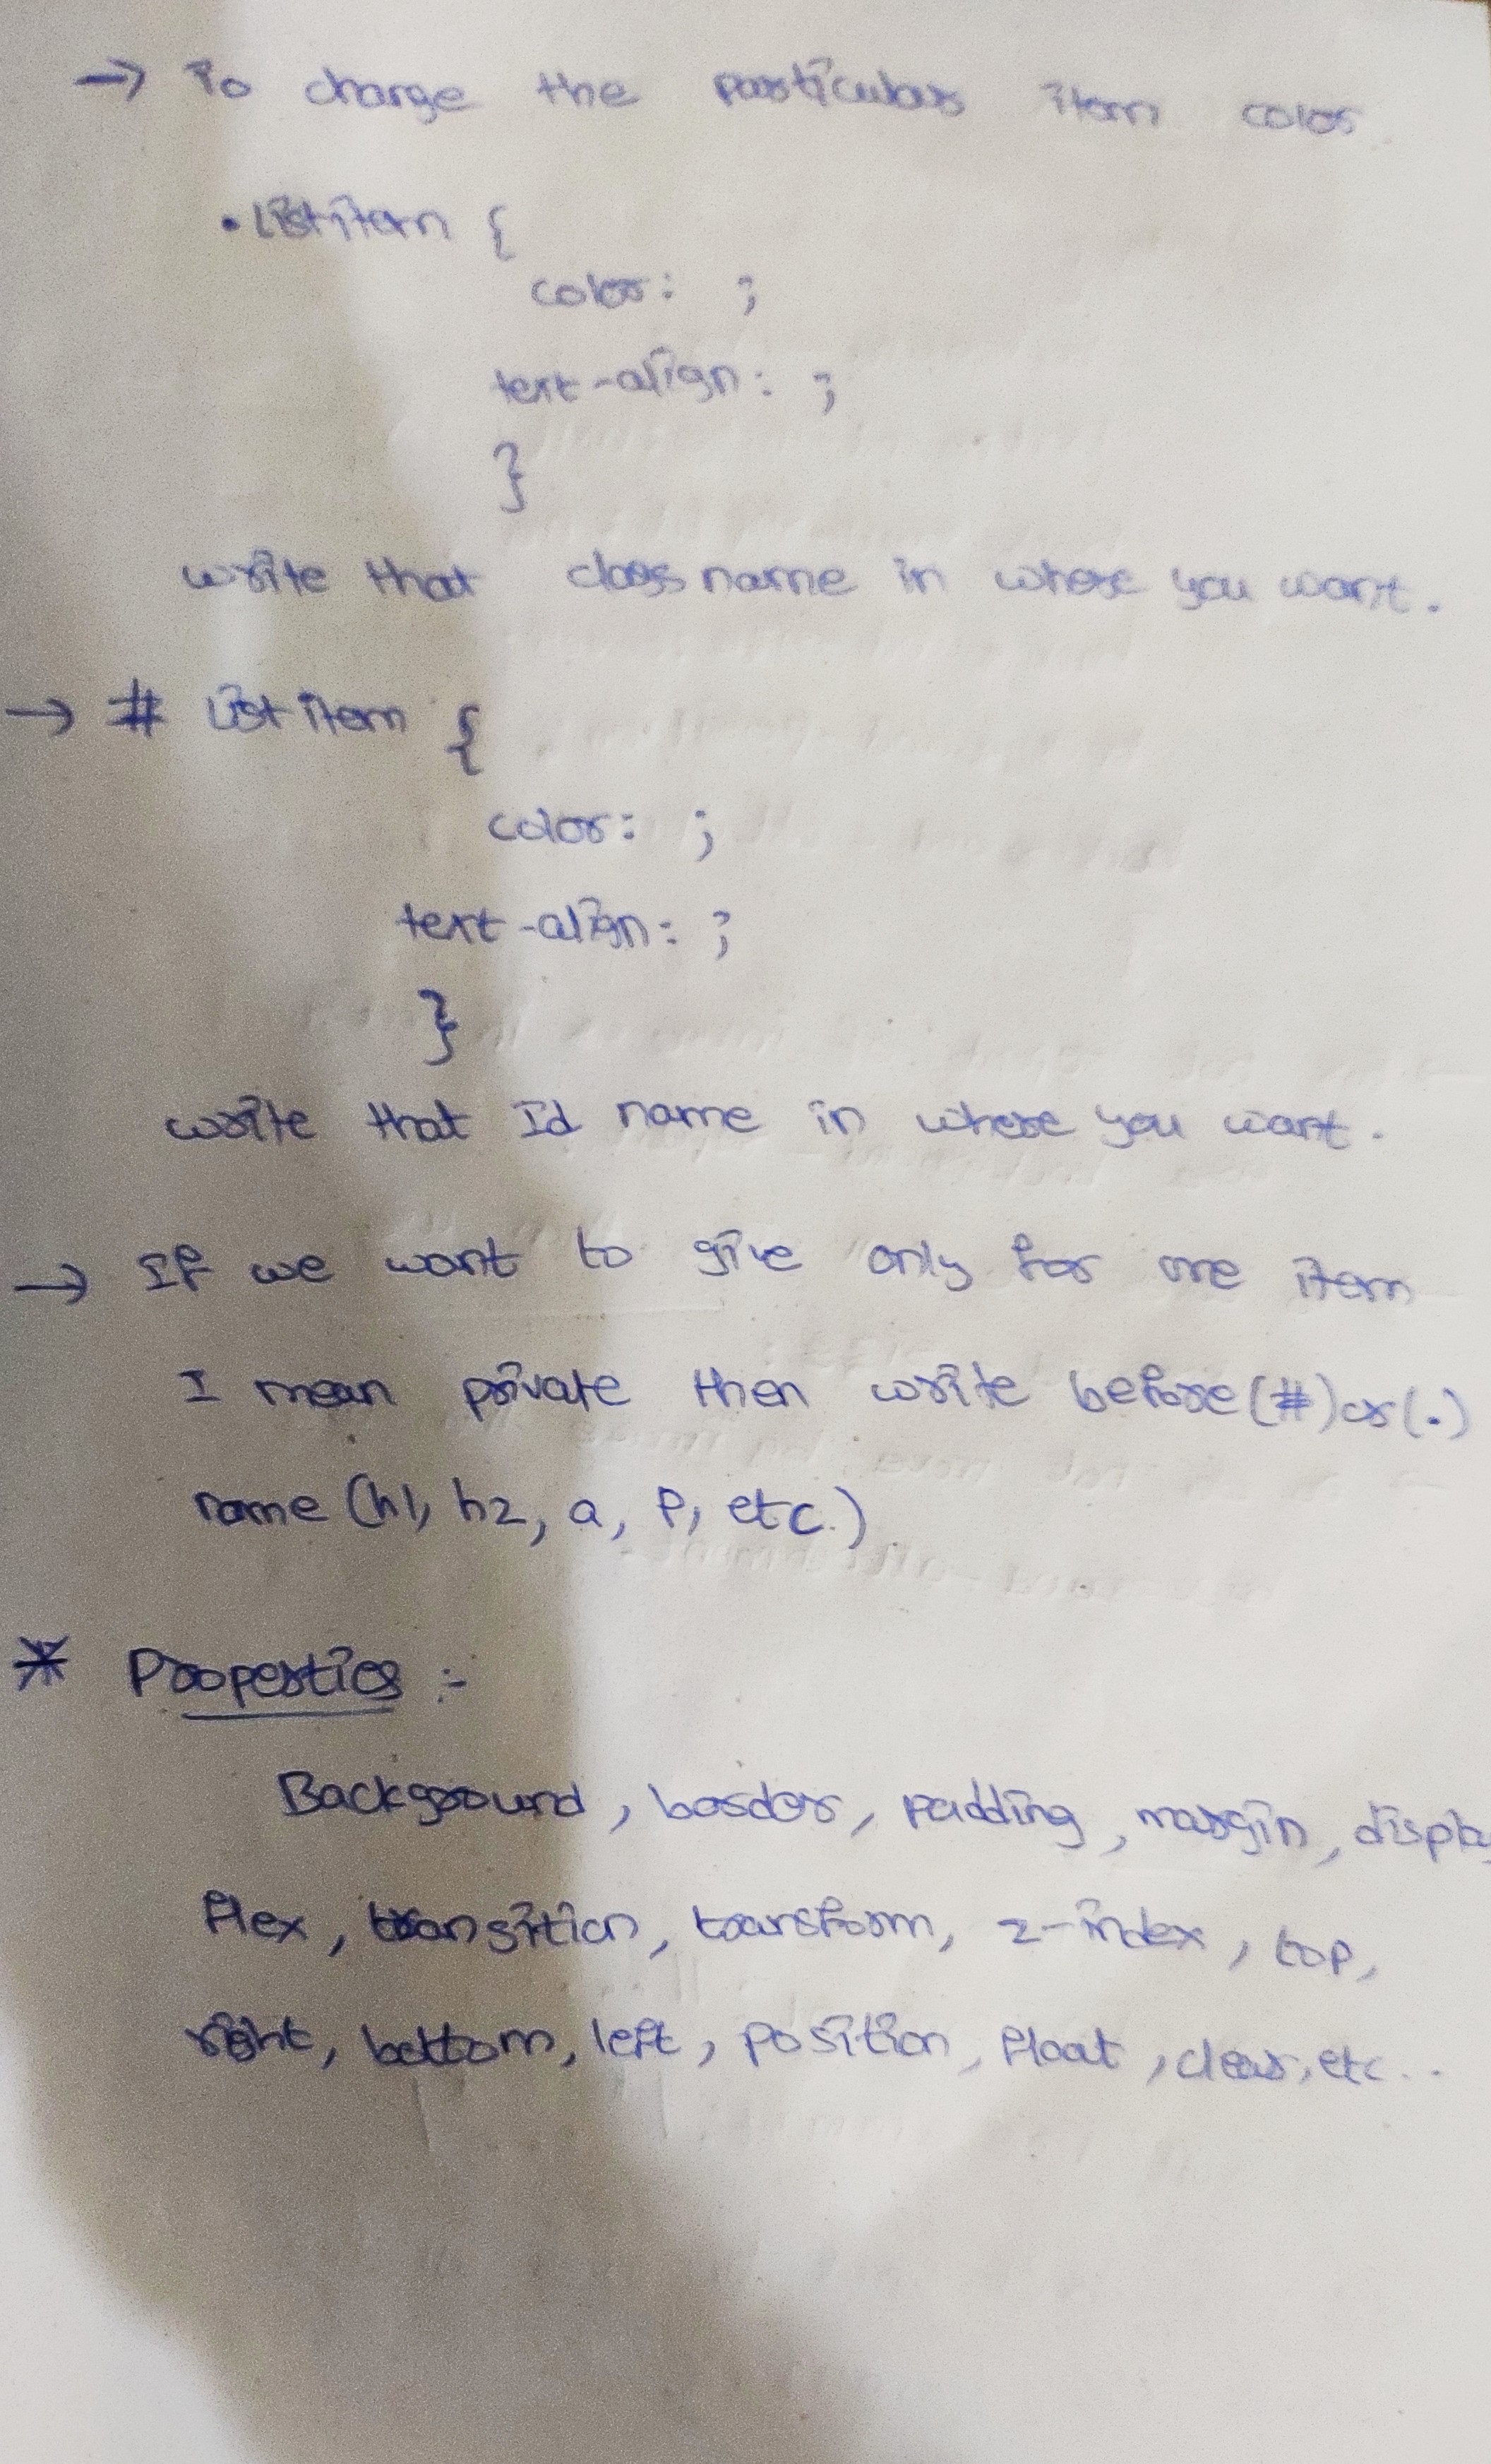 → To change the particular item color.
.List item {
color: ;
text-align: ;
}
write that class name in where you want.
→ # List item {
color: ;
text-align: ;
}
write that Id name in where you want.
→ If we want to give only for one item
I mean private then write before (#) or (.)
name (h1, h2, a, p, etc.)
* Properties :-
Background, border, padding, margin, display,
flex, transition, transform, z-index, top,
right, bottom, left, position, float, clear, etc..